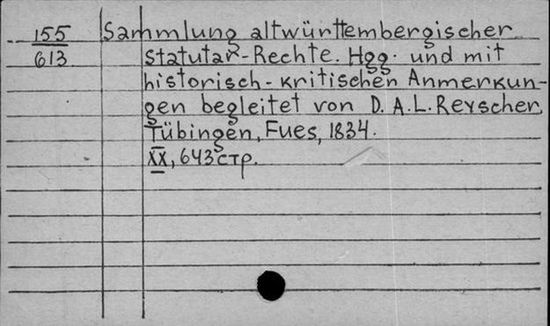 155 Sammlung altwürttembergischer
613 statutar-Rechte. Hgg. und mit
historisch-kritischen Anmerkun-
gen begleitet von D. A. L. Reyscher.
Tübingen, Fues, 1834.
XX, 643 стр.